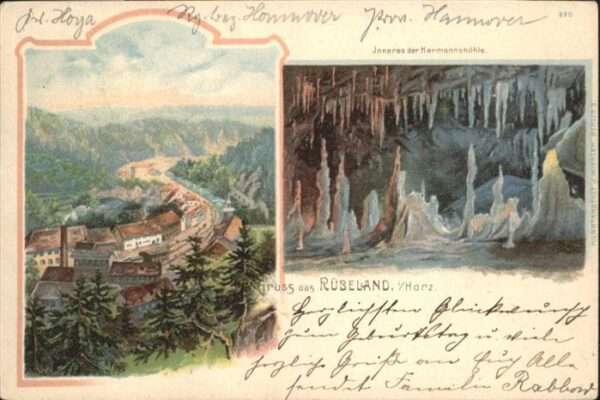 Hoya Rg. bez. Hannover Prov. Hannover
330
Inneres der Hermannshöhle.
Gruss aus RÜBELAND, i/Harz.
Herzlichsten Glückwunsch
zum Geburtstag u. viele
herzliche Grüße an Euch Alle
sendet Familie